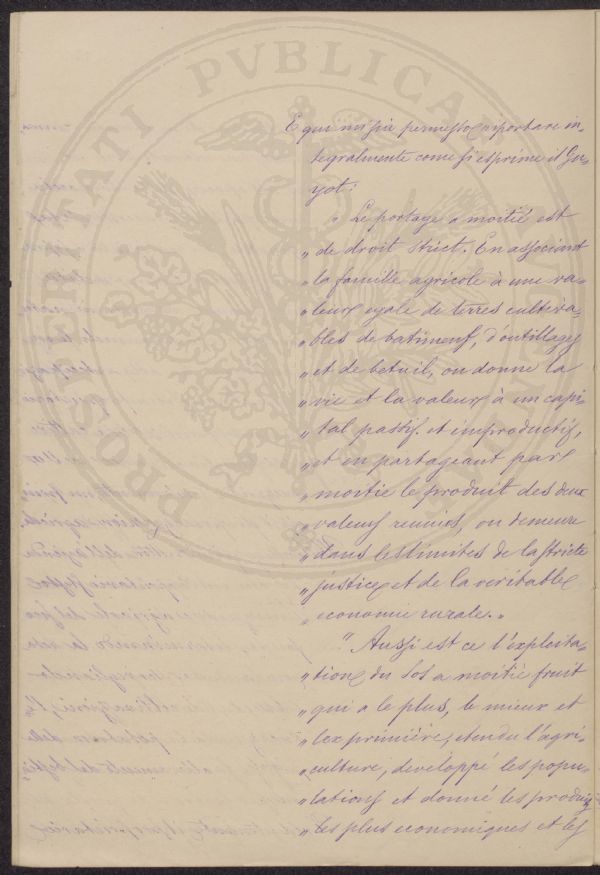 PROSPERITATI PVBLICAE
E qui mi sia permesso riportare in-
tegralmente come si esprime il Gu-
yot:
" Le partage a moitié est
" de droit strict. En associant
" la famille agricole à une va-
" leur egale de terres cultiva-
" bles de batiments, d'outillages
" et de betail, on donne la
" vie et la valeur à un capi-
" tal passif et improductif,
" et en partageant par
" moitie le produit des deux
" valeurs reunies, on demeure
" dans les limites de la stricte
" justice et de la veritable
" economie rurale. "
" Aussi est ce l'exploita-
" tion du sol a moitié fruit
" qui a le plus, le mieux et
" la première, etendu l'agri-
" culture, developpé les popu-
" lations et donné les produits
" les plus economiques et les